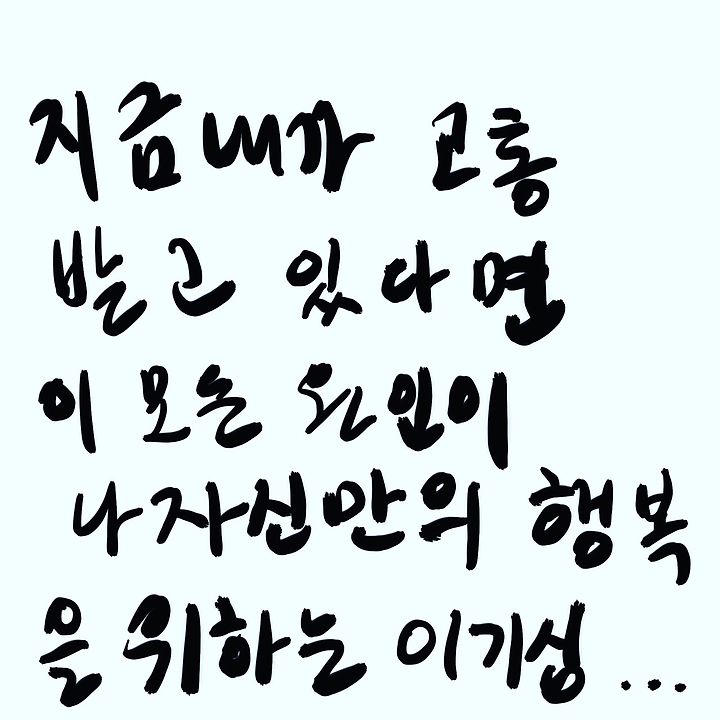 지금 내가 고통
받고 있다면
이 모든 원인이
나 자신만의 행복
을 위하는 이기심...